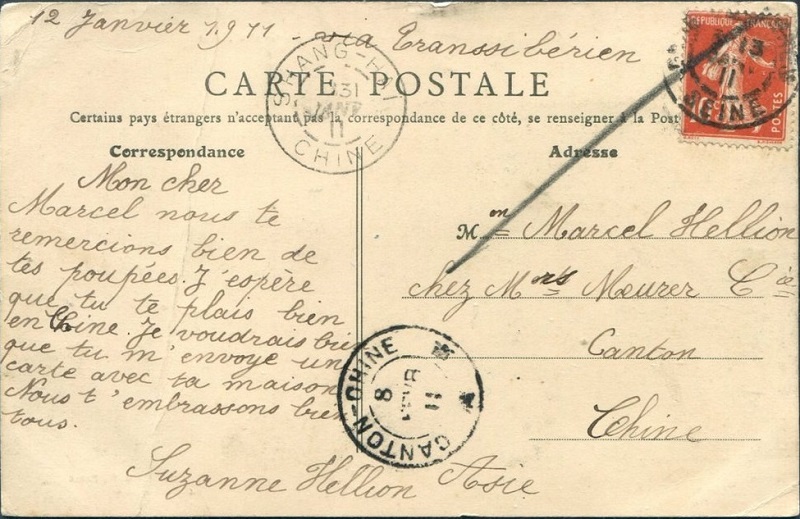 12 Janvier 1911 via Transsibérien
CARTE POSTALE
Certains pays étrangers n'acceptant pas la correspondance de ce côté, se renseigner à la Poste
Correspondance
Mon cher
Marcel nous te
remercions bien de
tes poupées. J'espère
que tu te plais bien
en Chine. Je voudrais bien
que tu m'envoye un
carte avec ta maison
Nous t'embrassons bien
tous.
Suzanne Hellion
Adresse
Mon Marcel Hellion
chez Mrs Meurer Cie
Canton
Chine
Asie
SHANG-HAI
31
JANV
11
CHINE
CANTON-CHINE
8
11
REPUBLIQUE FRANÇAISE
POSTES
13
11
SEINE